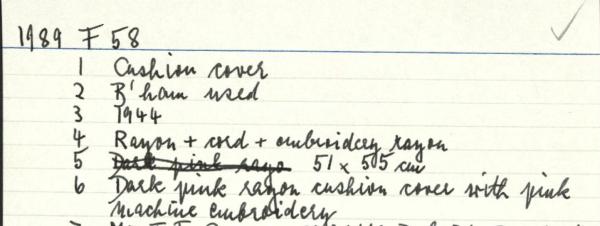 1989 F 58
1 Cushion cover
2 B'ham used
3 1944
4 Rayon + cord + embroidery rayon
5 Dark pink rayo 51 x 505 cm
6 Dark pink rayon cushion cover with pink
machine embroidery